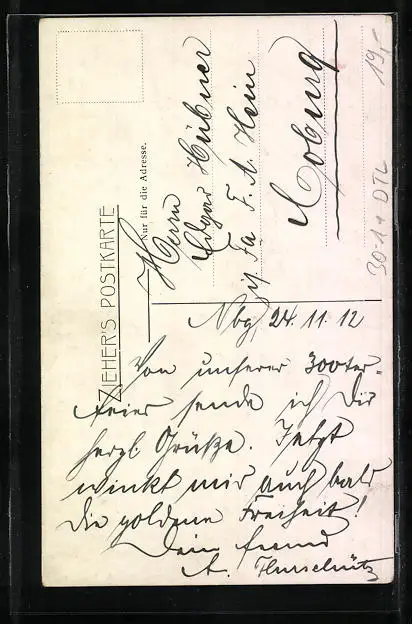 ZIEHER'S POSTKARTE
Nur für die Adresse.
Herrn
Edgar Hübner
p/ Fa F. A. Hein
Coburg
Nbg, 24. 11. 12
Von unserer 300ter-
feier sende ich Dir
herzl. Grüße. Jetzt
winkt mir auch bald
die goldene Freiheit!
Dein Freund
A.
19,-